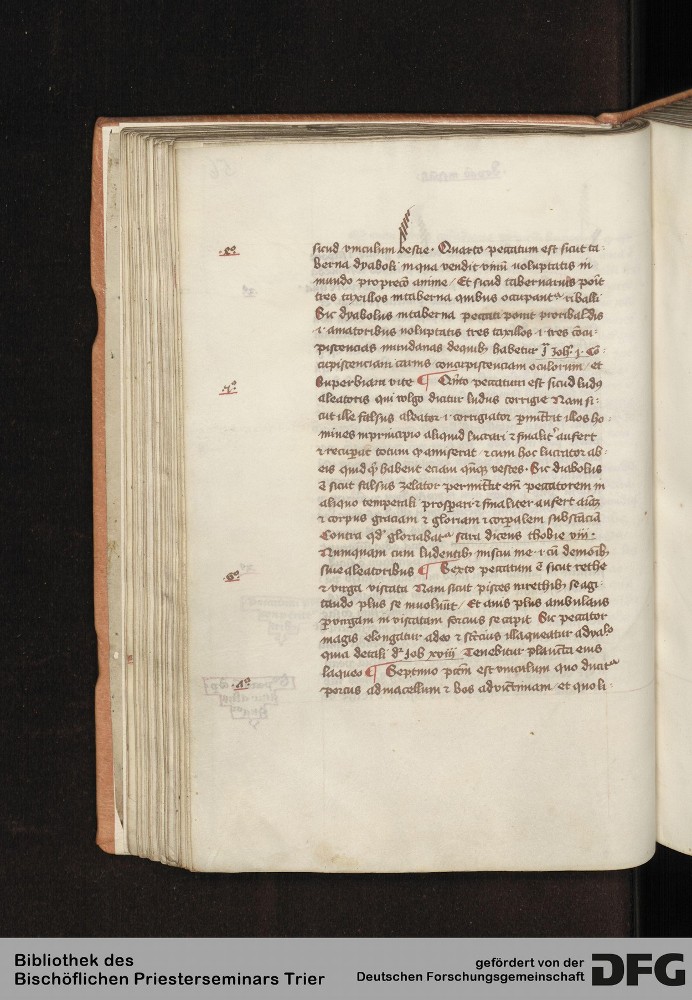 .4º.
sicud vinculum bestie. Quarto peccatum est sicut ta-
berna dyaboli in qua vendit vinū uoluptatis in
mundo pro precō anime / Et sicud tabernarius poīt
tres taxillos in taberna quibus occupantᵘʳ ribaldi
Sic dyabolus in taberna peccati ponit pro ribaldis
.i. amatoribus uoluptatis tres taxillos .i. tres cōcu-
piscencias mundanas de quibꝫ habetur Joh. j. Cō-
cupiscenciam carnis concupiscenciam oculorum / et
.5º.
Superbiam vite ¶ Qīto peccatum est sicud ludꝰ
aleatoris qui volgo dicitur ludus corrigie Nam si-
cut ille falsus aleator .i. corrigiator pmittit illos ho-
mines in principio aliquid lucrari ⁊ finalitʳ aufert
⁊ recuꝑat totum qᵈ amiserat ⁊ cum hoc lucrator ab
eis quid qͥd habent eciam vestes. Sic diabolus
ē sicut falsus zelator permittit eīm peccatorem in
aliquo temperali prosperari ⁊ finaliter aufert aīaꝫ
⁊ corpus graciam ⁊ gloriam ⁊ corpalem substāciā
Contra qᵈ gloriabatᵘʳ sara dicens thobie iii.
Numquam cum ludentibꝫ miscui me .i. cū demoībꝫ
.6º.
siue aleatoribus ¶ Sexto peccatum ē sicut rethe
⁊ virga viscata Nam sicut pisces in rethibꝫ se agi-
tando plus se inuoluūt / Et auis plus ambulans
ꝑ virgam in viscatam forcius se capit Sic peccator
magis elongatur a deo ⁊ forcius illaqueatur a dyalo
quia dr̄ Job xviii Tenebitur planta eius
.7º.
laqueo ¶ Septimo pctm̄ est vinculum quo ducitᵘʳ
porcus ad macellum ⁊ bos ad victimam / et quo li-
Bibliothek des
Bischöflichen Priesterseminars Trier
gefördert von der
Deutschen Forschungsgemeinschaft
DFG